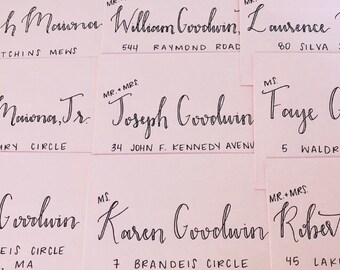 Maiona
TCHINS MEWS
MR. + MRS.
William Goodwin
544 RAYMOND ROAD
Laurence
80 SILVA
Maiona, Jr.
CIRCLE
MR. + MRS.
Joseph Goodwin
34 JOHN F. KENNEDY AVENU
MS.
Faye G
5 WALDR
Goodwin
DEIS CIRCLE
MA
MS.
Karen Goodwin
7 BRANDEIS CIRCLE
MR. + MRS.
Robert
45 LAK